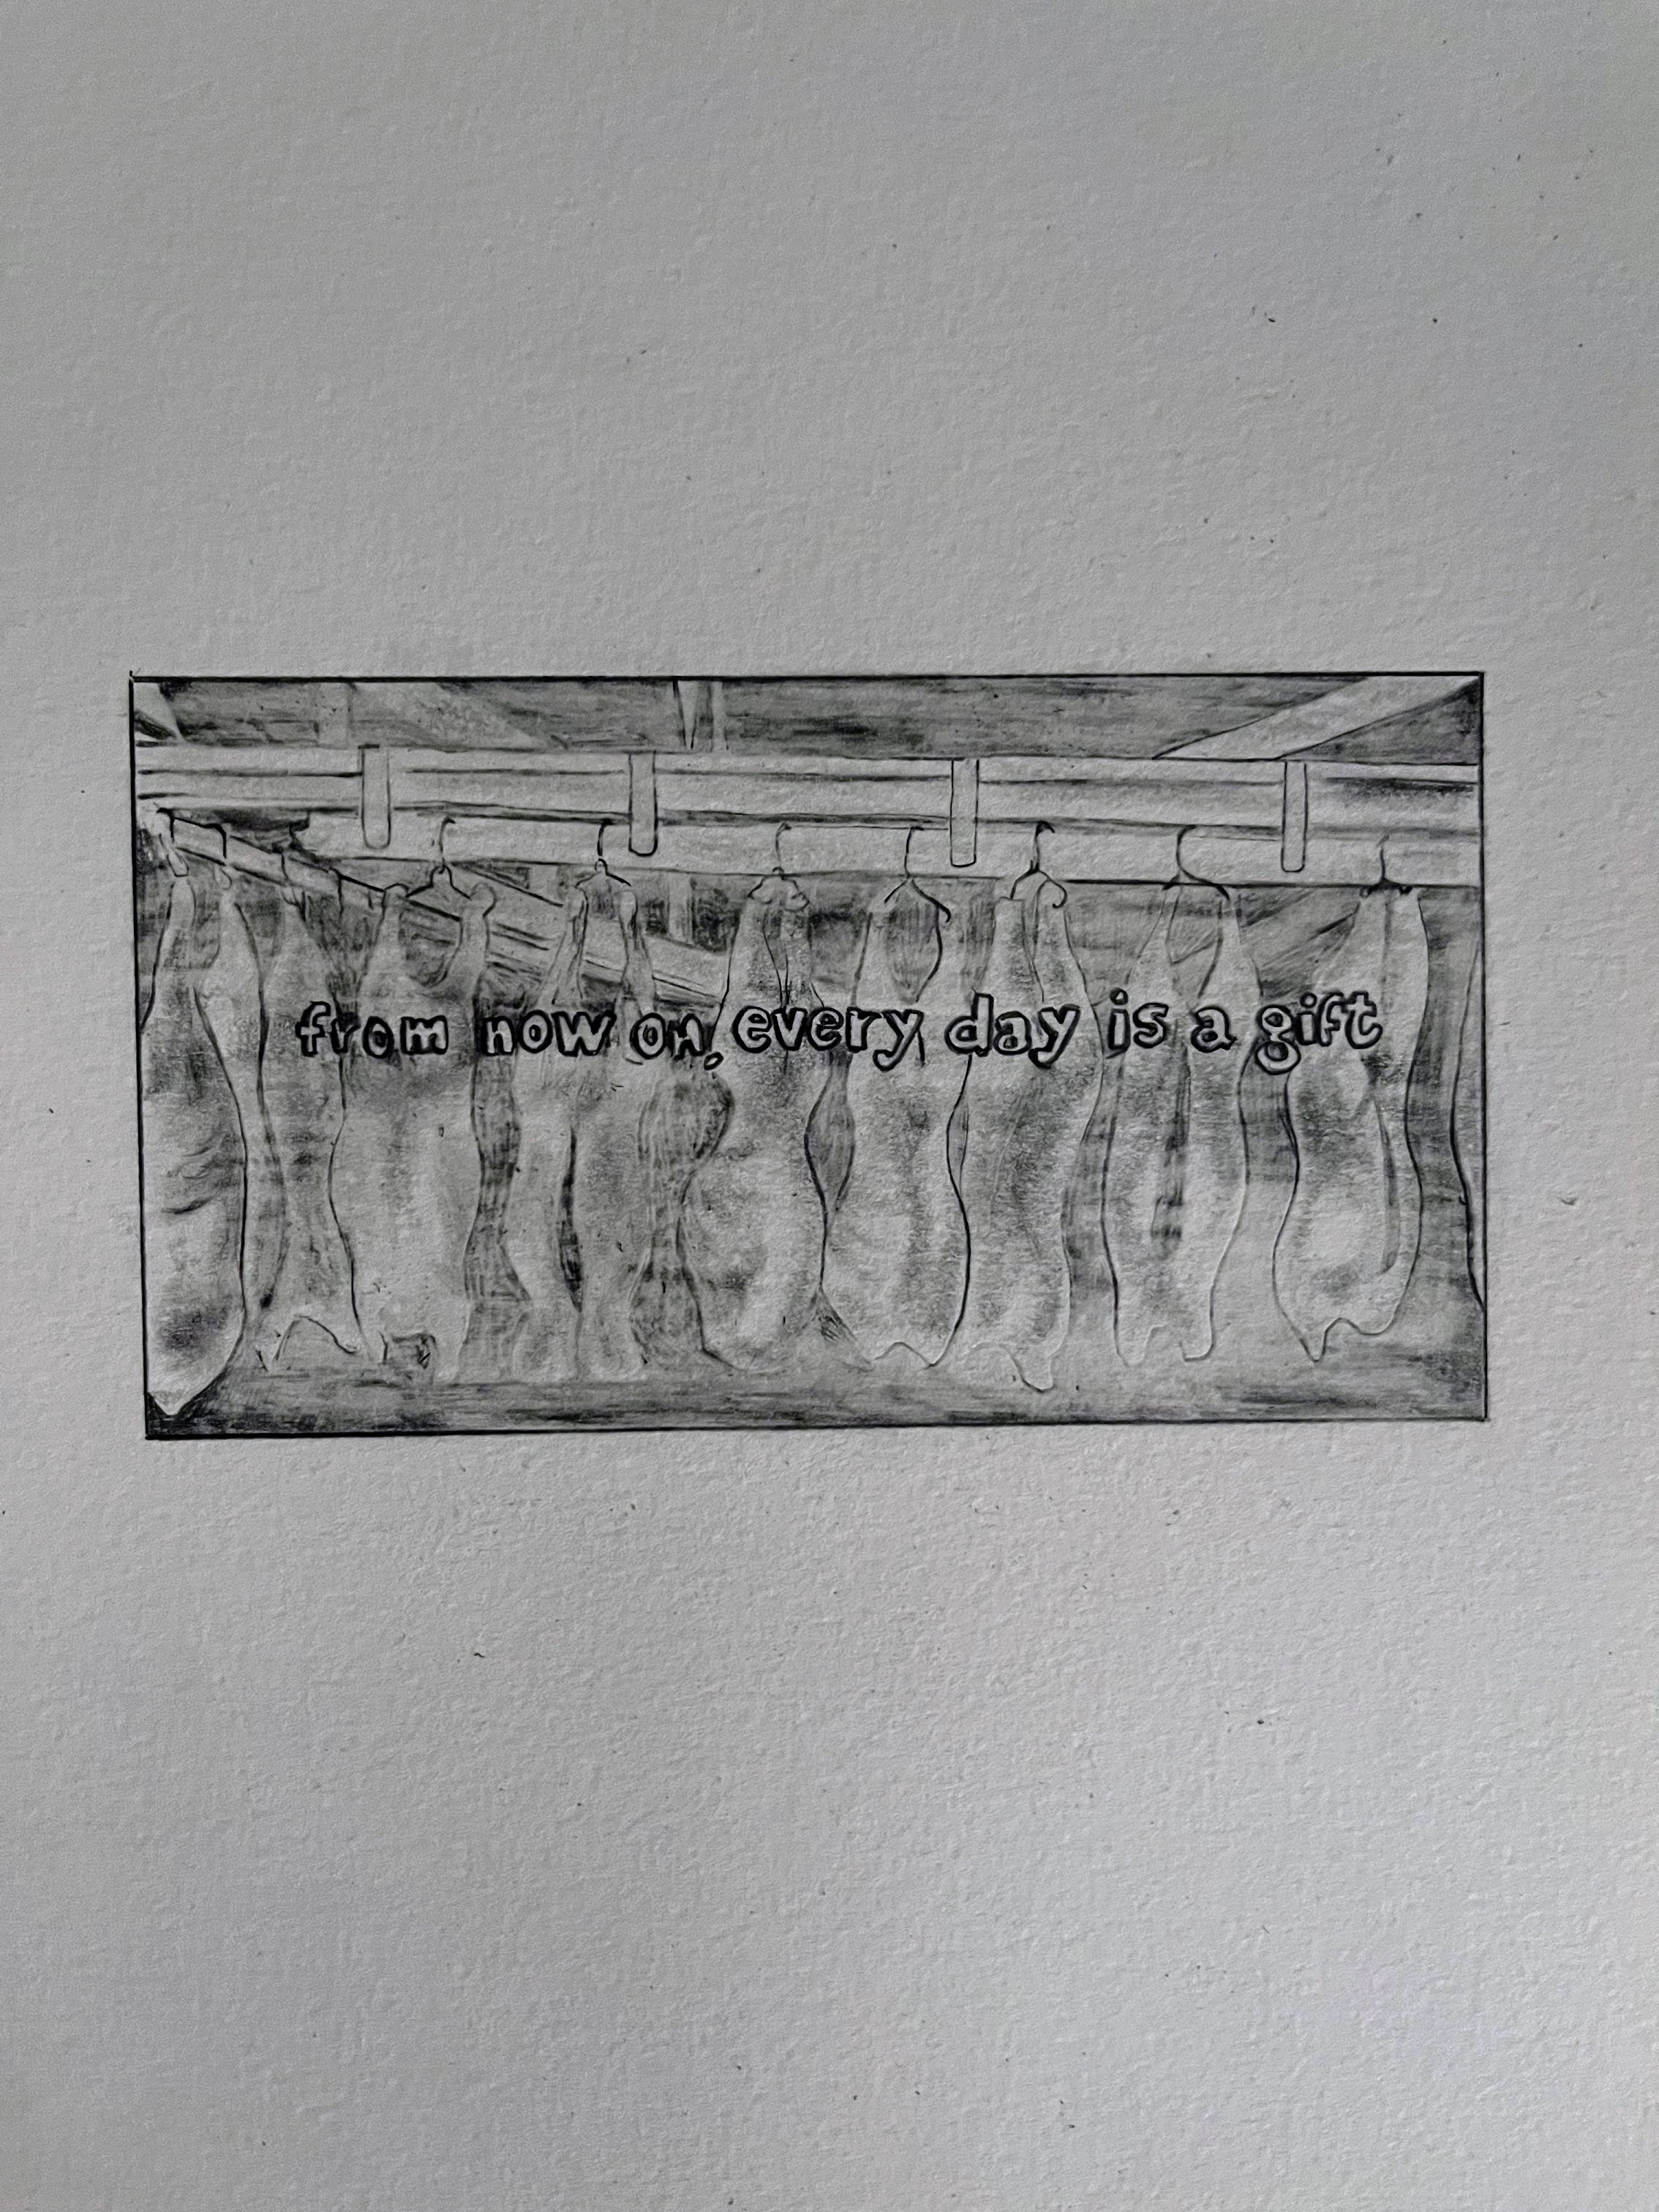 from now on, every day is a gift